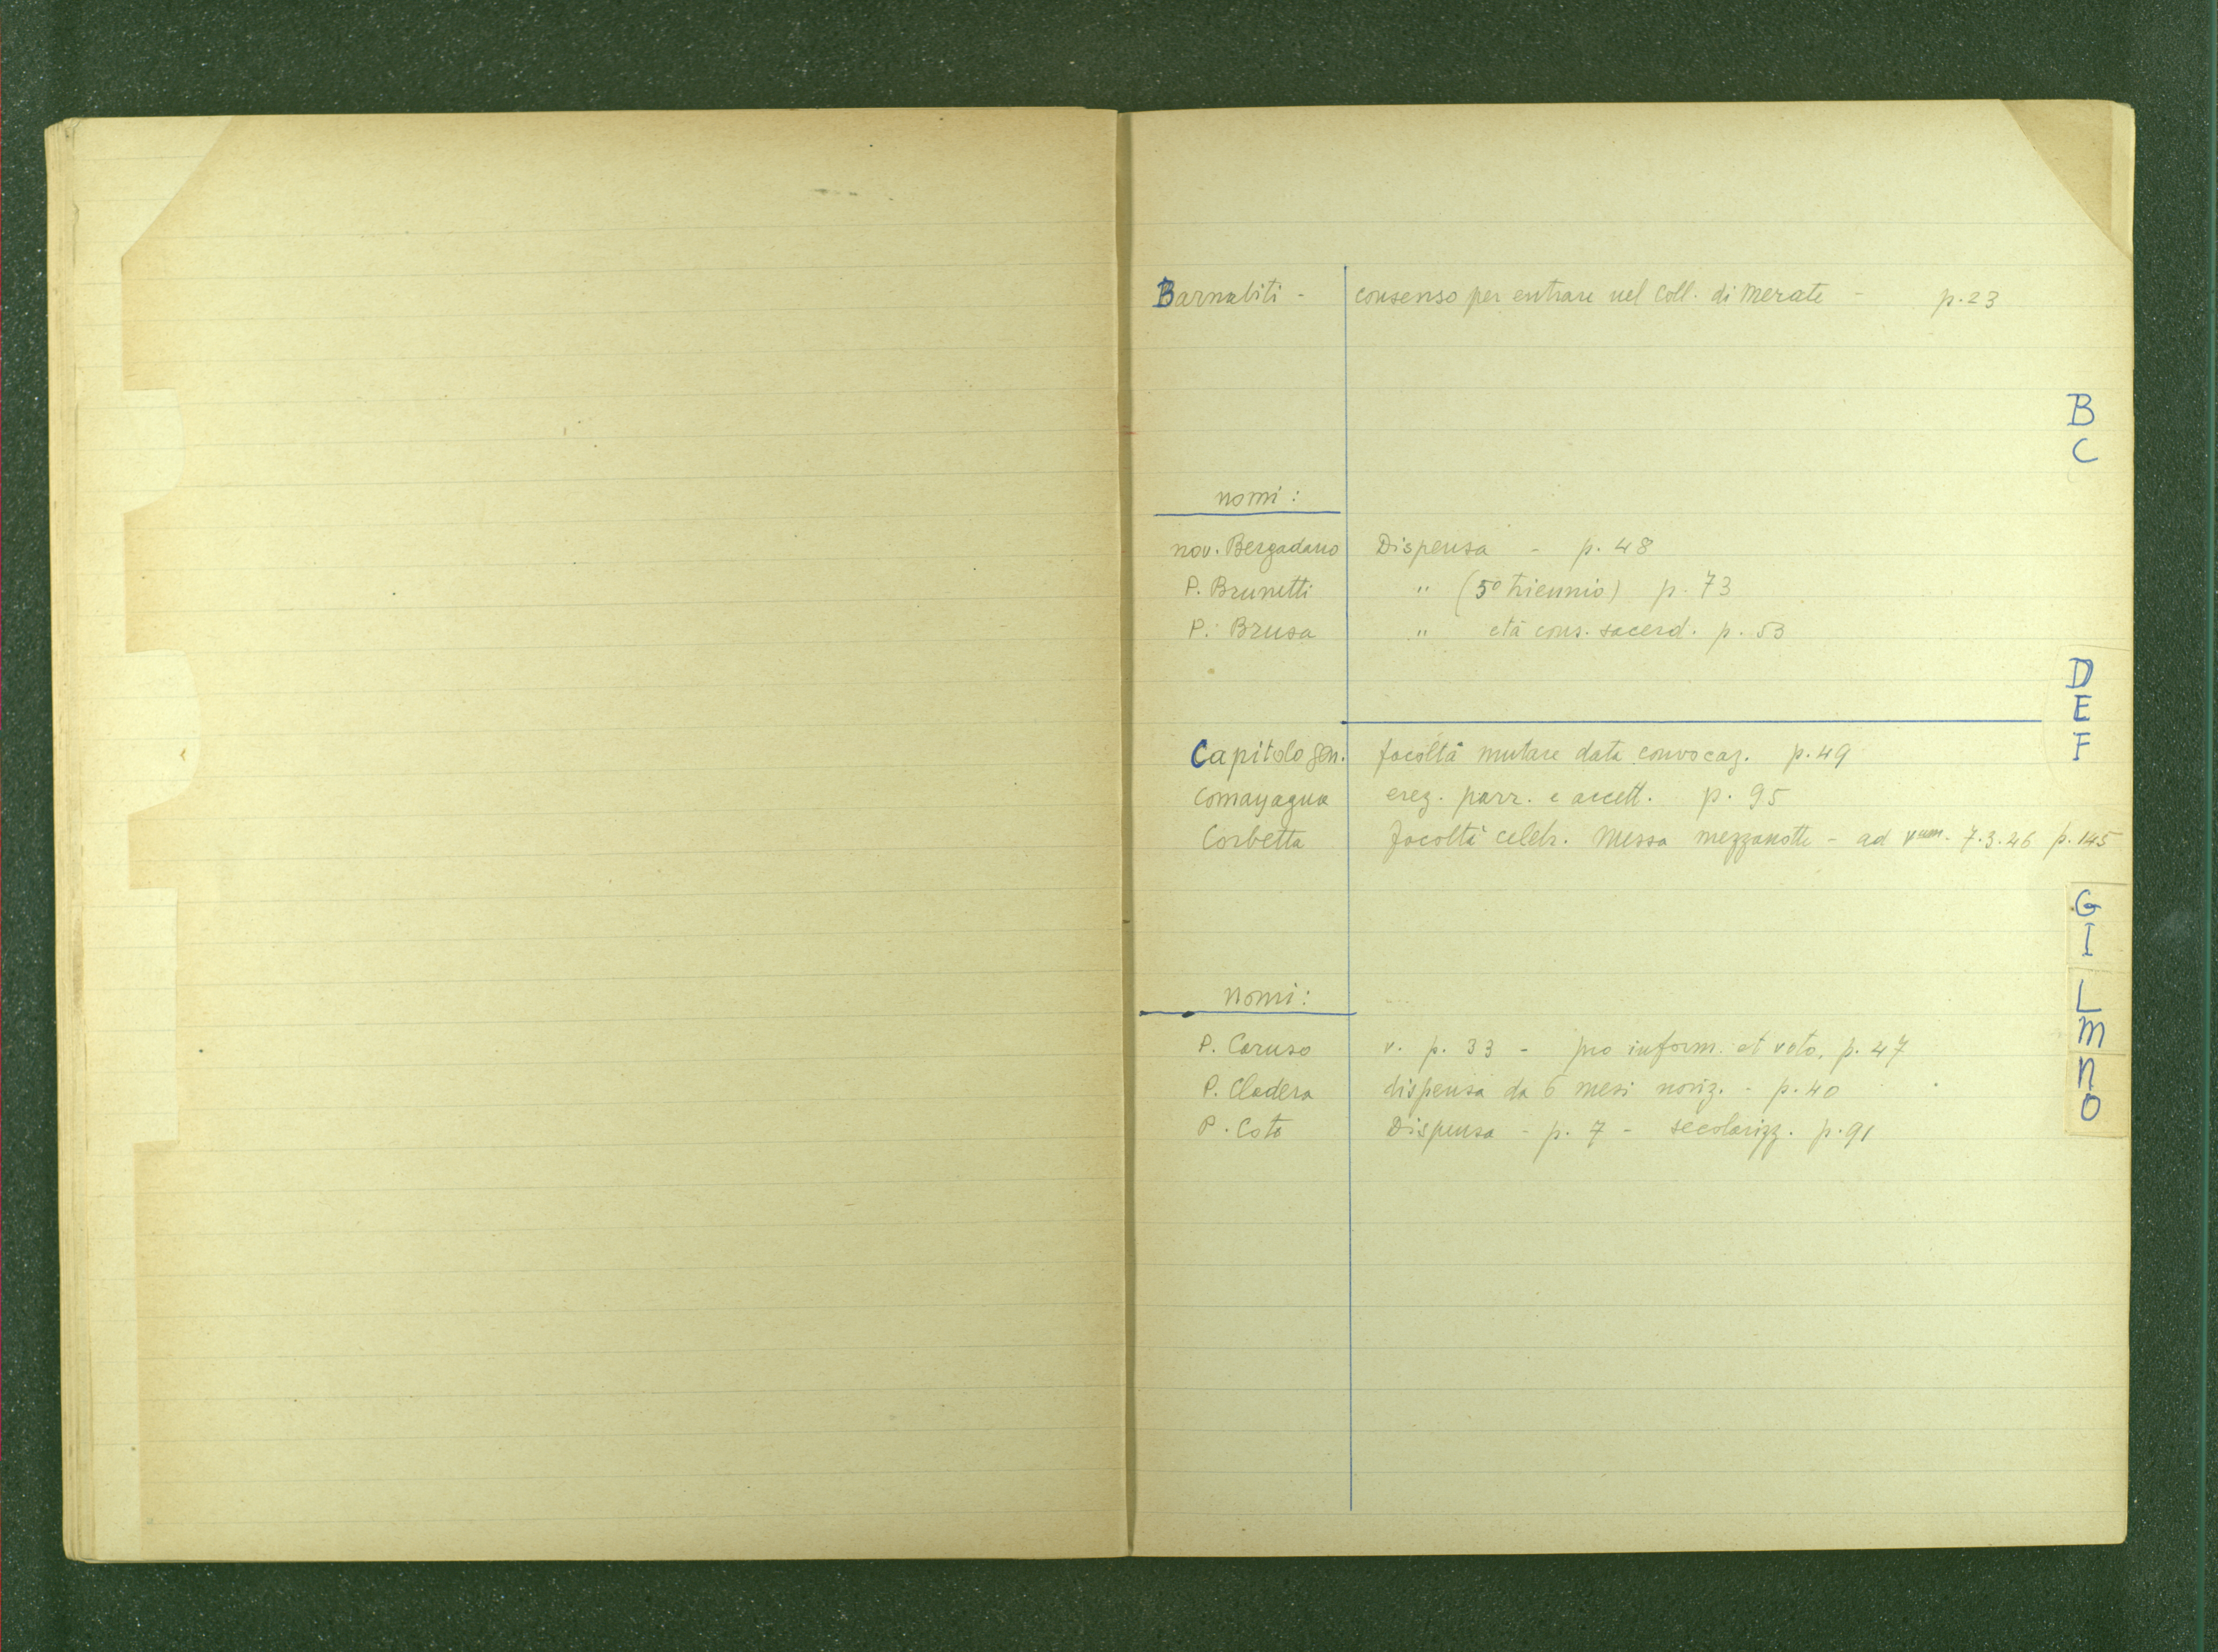 Barnabiti - consenso per entrare nel Coll. di Merate - p. 23
B
C
nomi:
nov. Bergadano Dispensa - p. 48
P. Brunetti " (5º triennio) p. 73
P. Brusa " età cons. sacerd. p. 53
D
E
F
Capitolo gen. facoltà mutare data convocaz. p. 49
Comayagua erez. parr. e accett. p. 95
Corbetta facoltà celebr. Messa mezzanotte - ad 7.3.46 p. 145
G
I
L
M
N
O
nomi:
P. Caruso v. p. 33 - pro inform. et voto. p. 47
P. Cladera dispensa da 6 mesi noviz. - p. 40
P. Coto Dispensa - p. 7 - secolarizz. p. 91